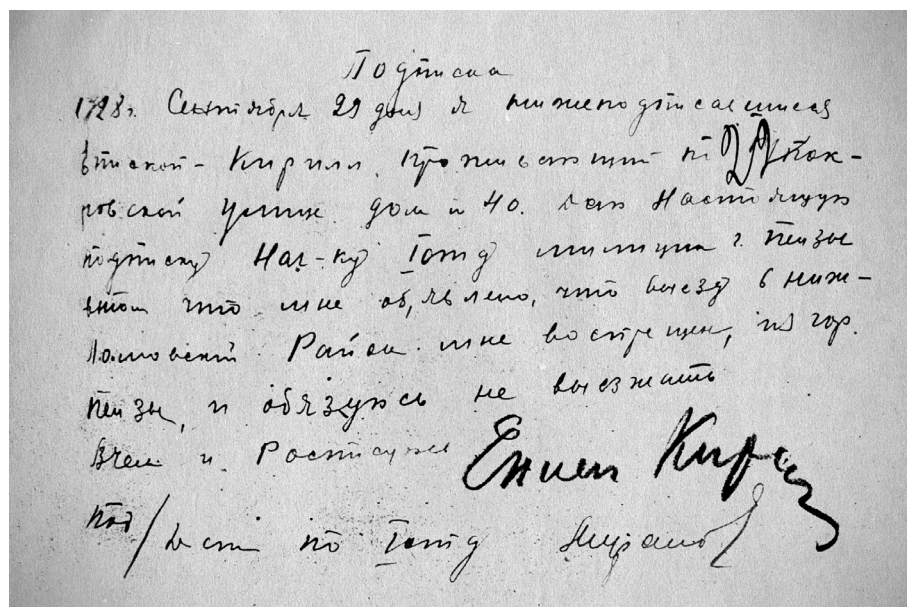 Подписка
1928 г. Сентября 29 дня я нижеподписавшийся
Епископ - Кирилл проживающий по Пок-
ровской улице дом № 40. даю Настоящую
подписку Нач-ку Iотд милиции г. Пензы
в том что мне об,явлено, что выезд в Ниж-
Ломовский Район мне воспрещен, из гор.
Пензы, и обязуюсь не выезжать
В чем и Росписуюсь Епископ Кирилл
под / по Iотд